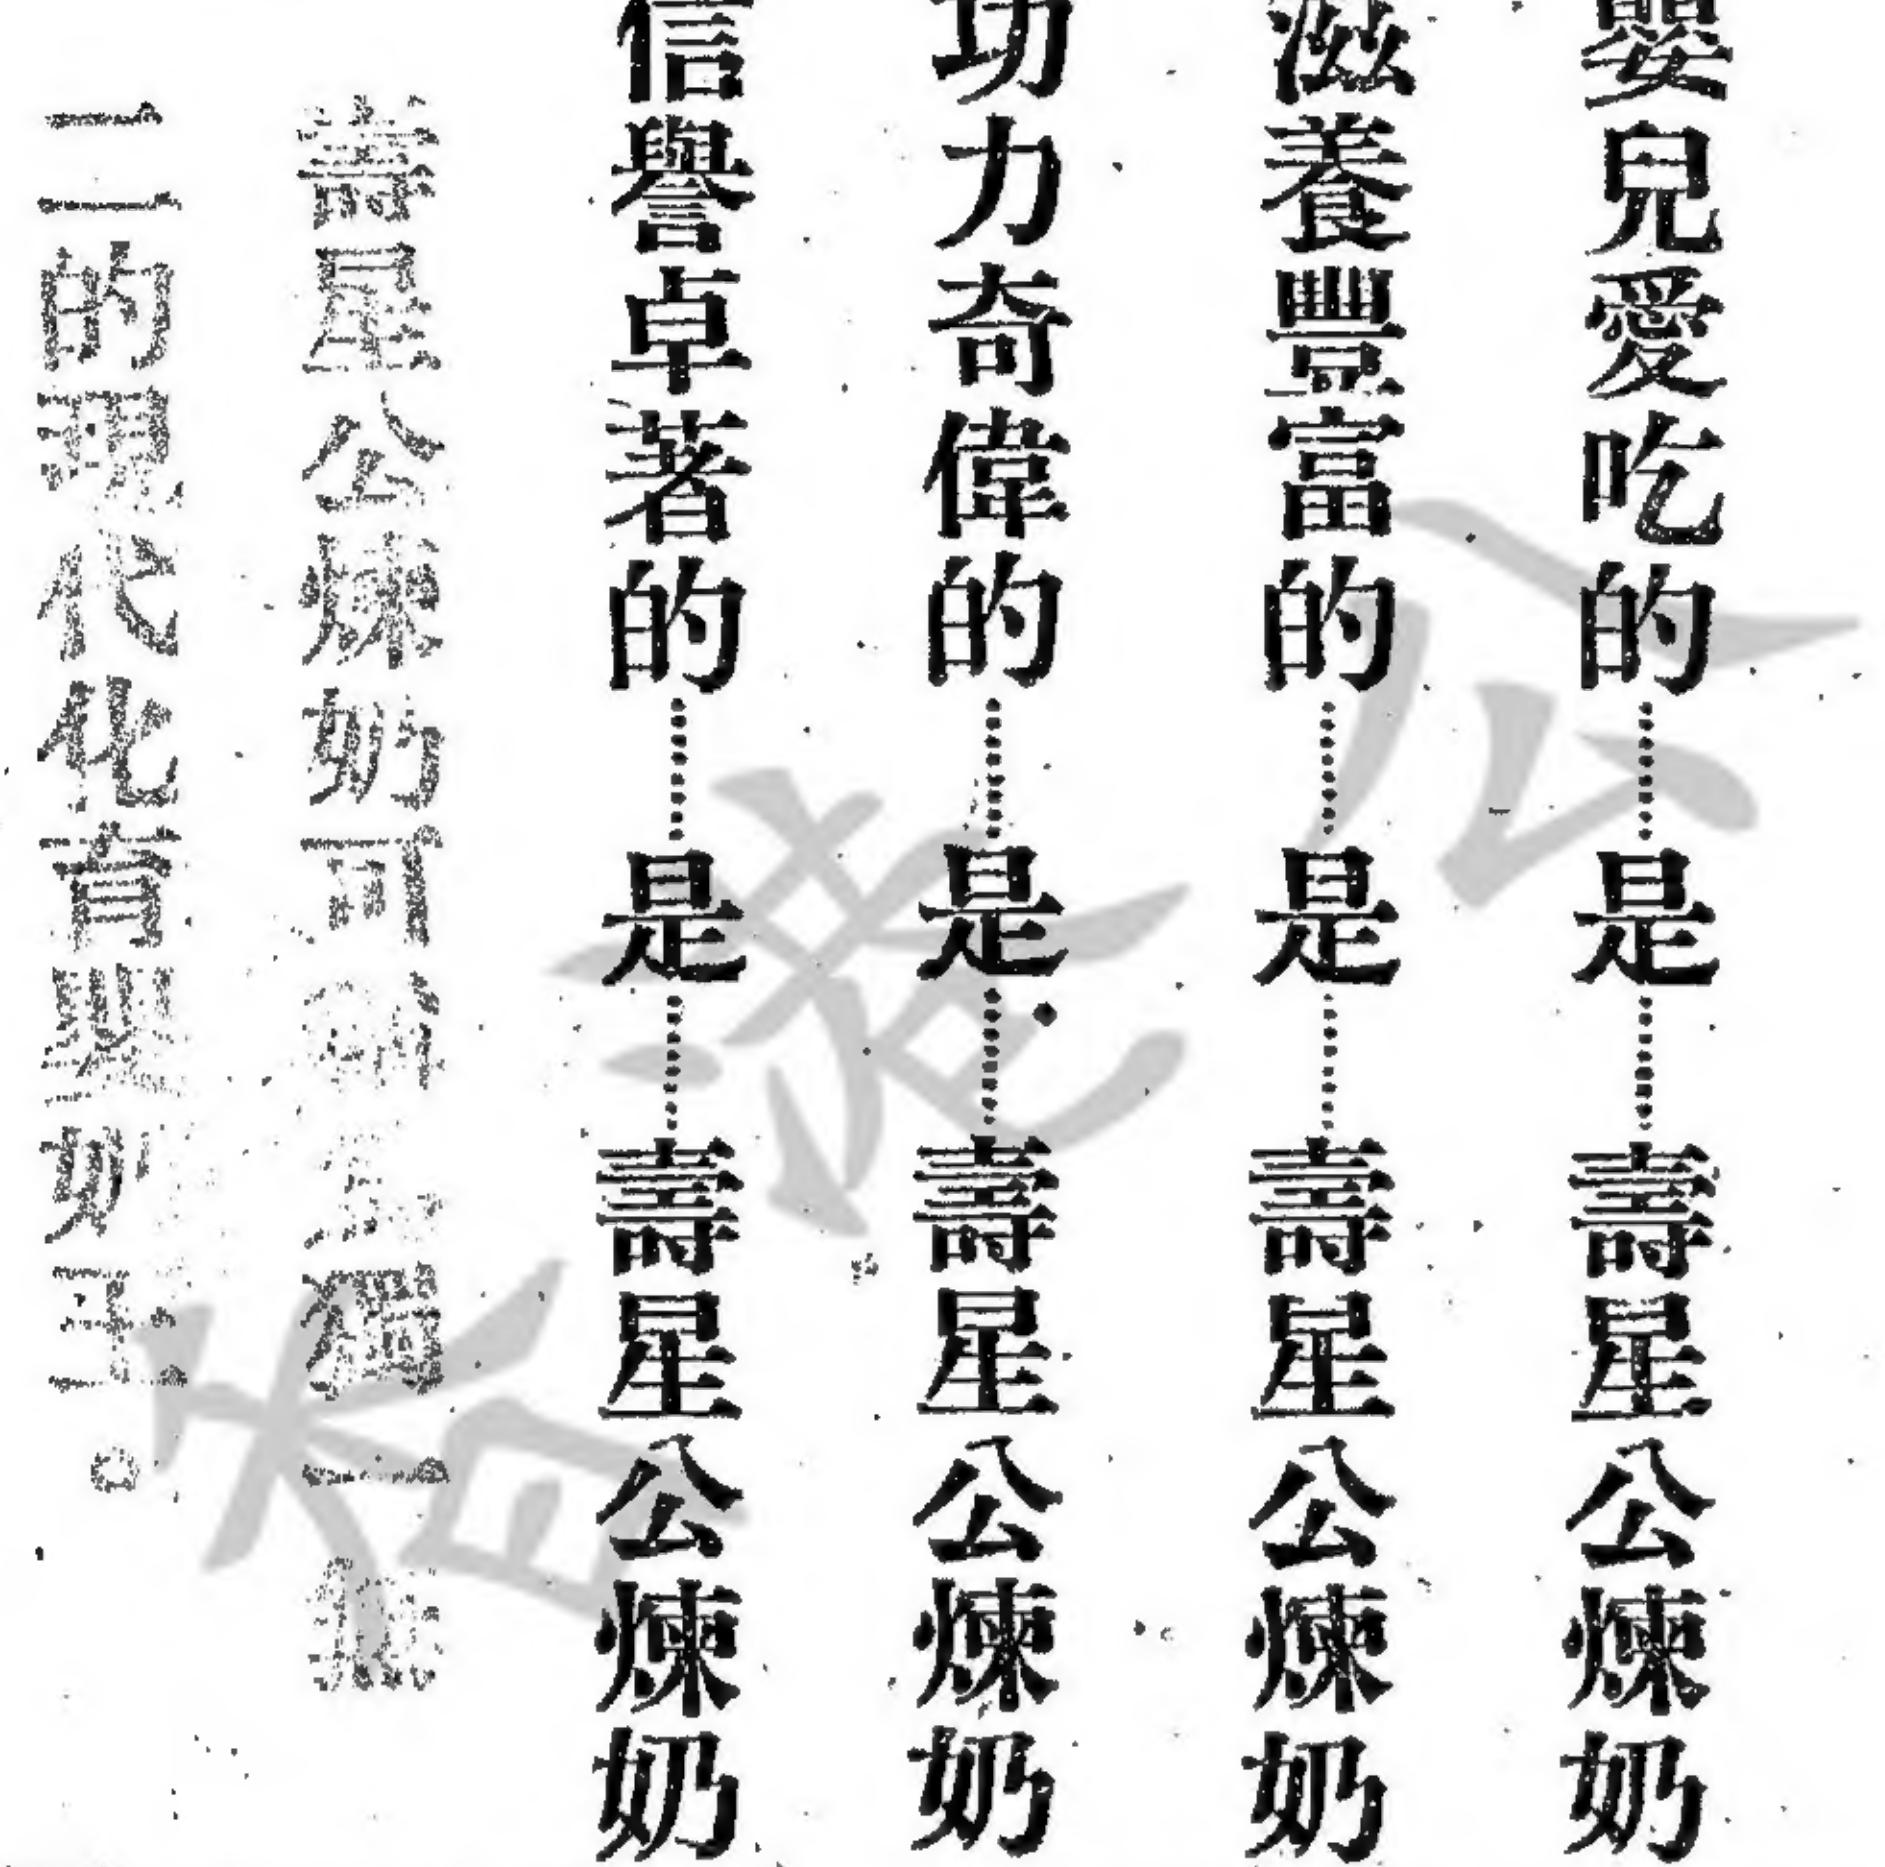 嬰兒愛吃的……是……壽星公煉奶
滋養豐富的……是……壽星公煉奶
功力奇偉的……是……壽星公煉奶
信譽卓著的……是……壽星公煉奶
壽星公煉奶可獨一無
二的現代化育嬰奶王。